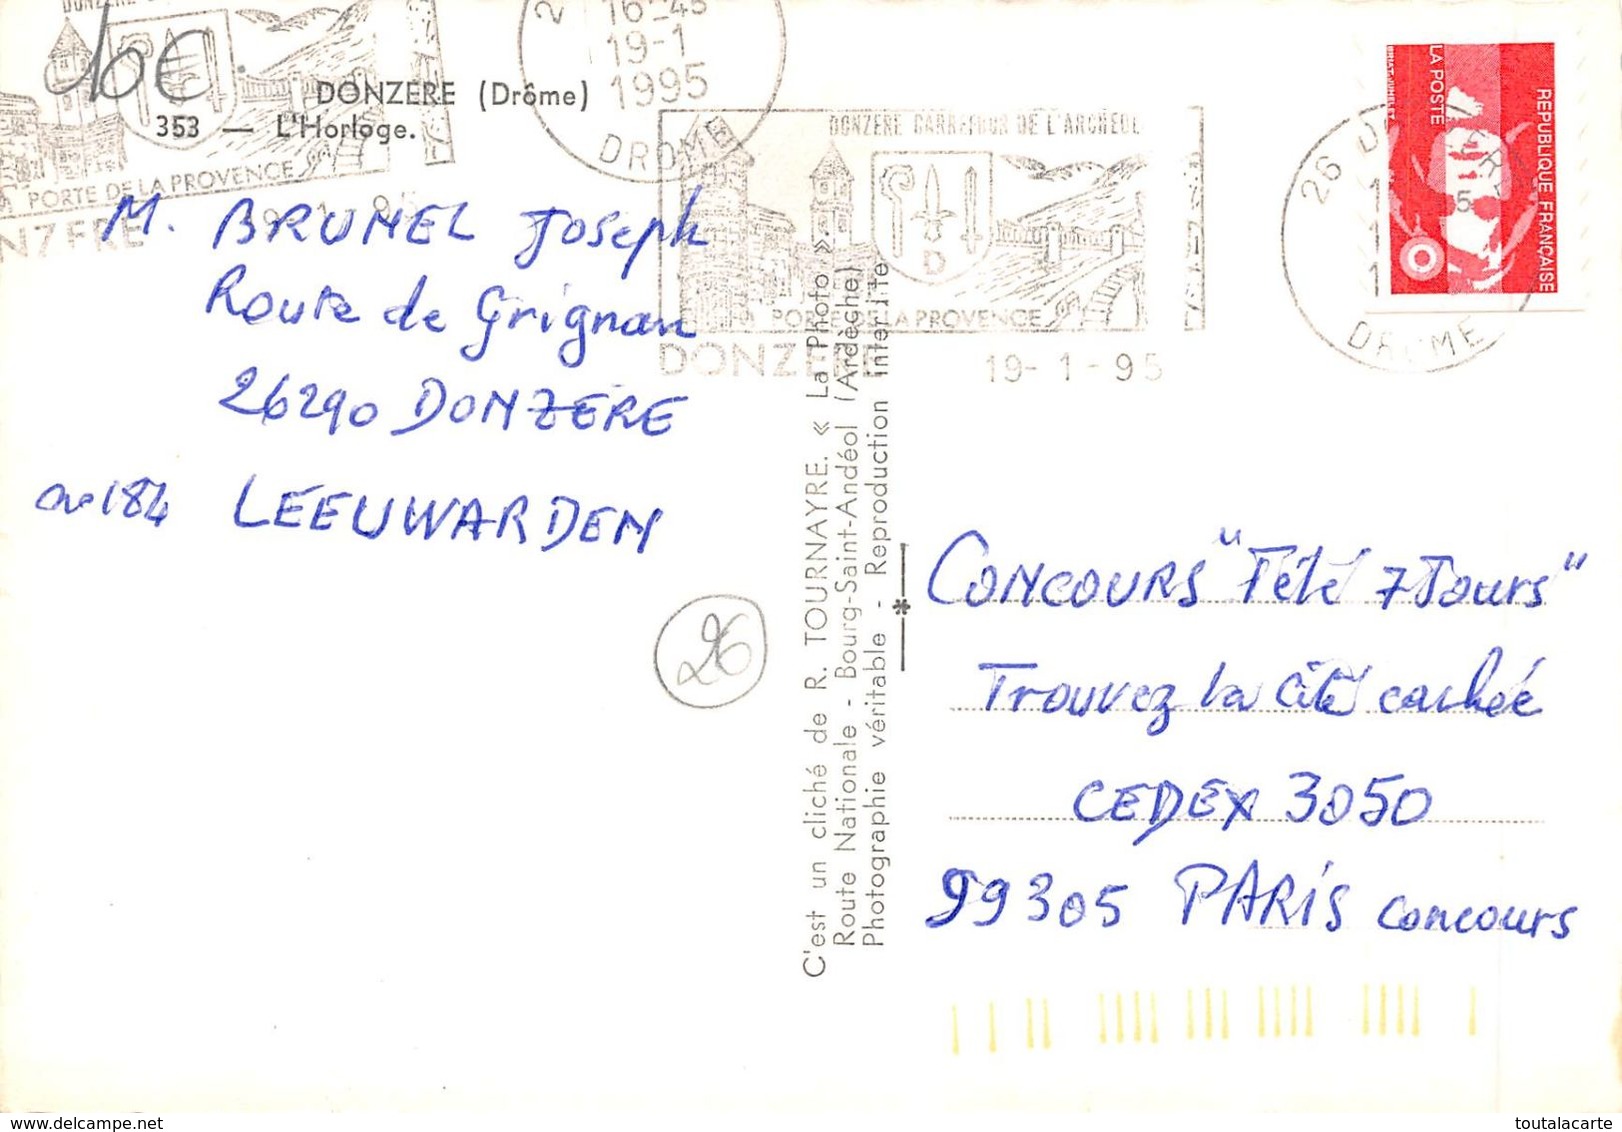 10€.
DONZERE (Drôme)
353 — L'Horloge.
PORTE DE LA PROVENCE
16-45
19-1
1995
DROME
DONZERE CARREFOUR DE L'ARCHEOL
D
PORTE DE LA PROVENCE
DONZERE 19-1-95
26
DROME
LA POSTE
REPUBLIQUE FRANÇAISE
M. BRUNEL Joseph
Route de Grignan
26290 DONZERE
184 LEEUWARDEN
26
C'est un cliché de R. TOURNAYRE. « La Photo ».
Route Nationale - Bourg-Saint-Andéol (Ardèche)
Photographie véritable - Reproduction interdite
CONCOURS "Télé 7 Jours"
Trouvez la cité cachée
CEDEX 3050
99305 PARIS concours
toutalacarte